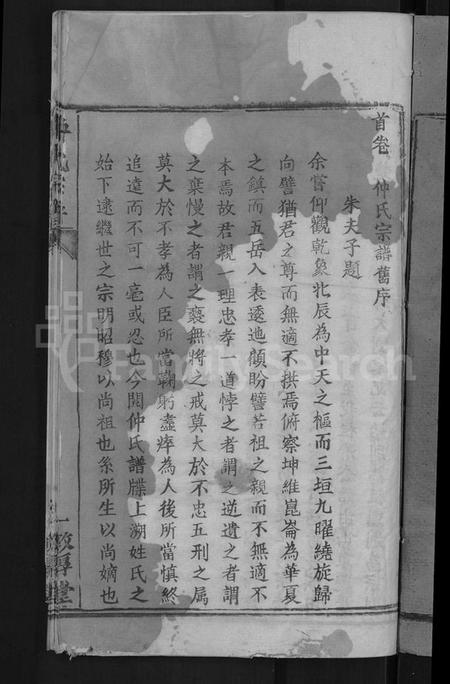 首卷 仲氏宗譜舊序
朱夫子題
余嘗仰觀乾象北辰為中天之樞而三垣九曜繞旋歸
向譬猶君之尊而無適不拱焉俯察坤維崑崙為華夏
之鎮而五岳入表逶迆顧盼譬若祖之親而不無適不
本焉故君親一理忠孝一道悖之者謂之逆遺之者謂
之棄慢之者謂之褻無將之戒莫大於不忠五刑之属
莫大於不孝為人臣所當鞠躬盡瘁為人後所當慎終
追遠而不可一毫或忍也今閱仲氏譜牒上溯姓氏之
始下逮繼世之宗明昭穆以尚祖也糸所生以尚嫡也
FamilySearch